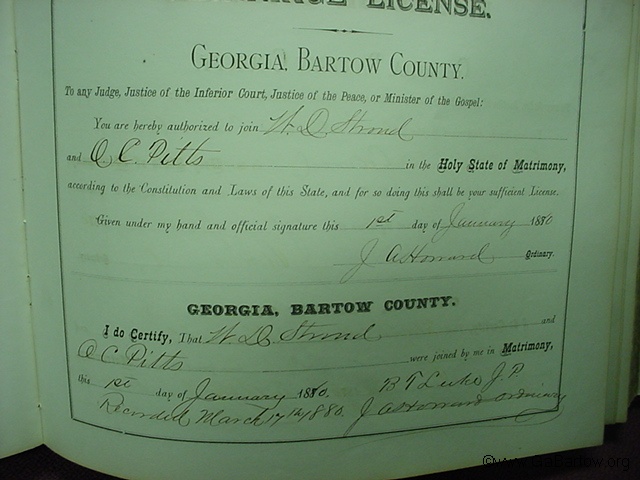 LICENSE.
GEORGIA, BARTOW COUNTY.
To any Judge, Justice of the Inferior Court, Justice of the Peace, or Minister of the Gospel:
You are hereby authorized to join W. D. Stroud
and O. C. Pitts in the Holy State of Matrimony,
according to the Constitution and Laws of this State, and for so doing this shall be your sufficient License.
Given under my hand and official signature this 1st day of January 1880
J A Howard Ordinary.
GEORGIA, BARTOW COUNTY.
I do Certify, That W. D. Stroud and
O C Pitts were joined by me in Matrimony,
this 1st day of January 1880. B T Luke J. P.
Recorded March 17th 1880. J A Howard Ordinary